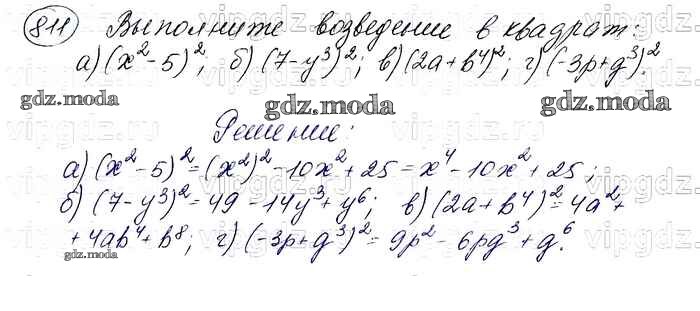 811 Выполните возведение в квадрат:
а) (x² - 5)²; б) (7 - y³)²; в) (2a + b⁴)²; г) (-3p + q³)².
gdz.moda gdz.moda gdz.moda
Решение:
а) (x² - 5)² = (x²)² - 10x² + 25 = x⁴ - 10x² + 25;
б) (7 - y³)² = 49 - 14y³ + y⁶; в) (2a + b⁴)² = 4a² +
+ 4ab⁴ + b⁸; г) (-3p + q³)² = 9p² - 6pq³ + q⁶.
gdz.moda